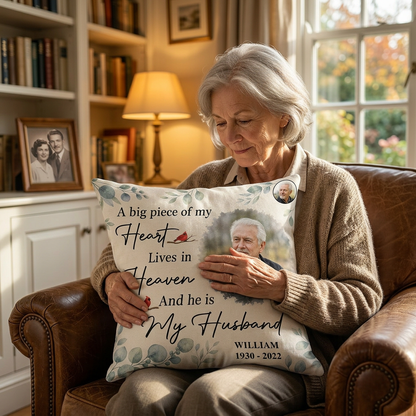 A big piece of my
Heart
Lives in
Heaven
And he is
My Husband
WILLIAM
1930 - 2022